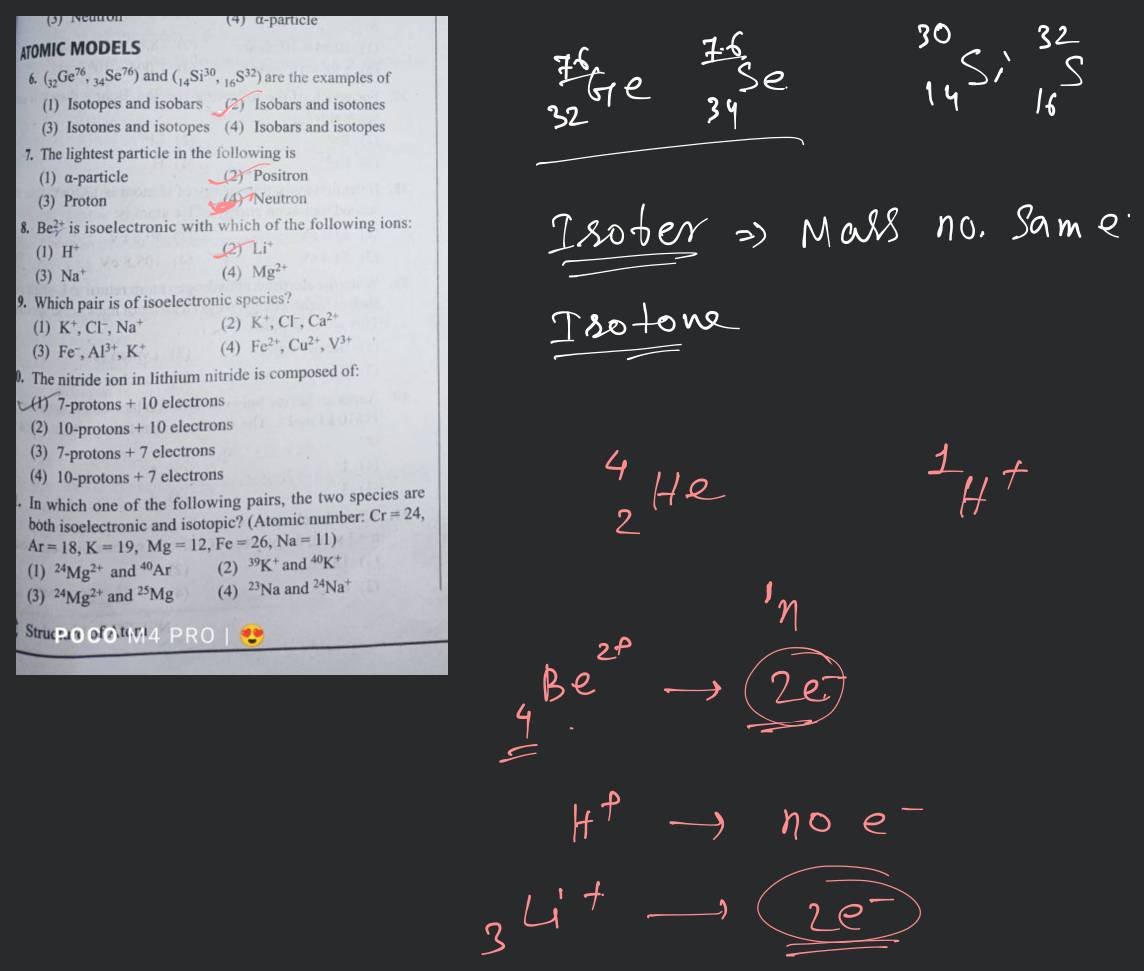 (3) Neutron (4) α-particle
ATOMIC MODELS
6. (₃₂Ge⁷⁶, ₃₄Se⁷⁶) and (₁₄Si³⁰, ₁₆S³²) are the examples of
(1) Isotopes and isobars (2) Isobars and isotones
(3) Isotones and isotopes (4) Isobars and isotopes
7. The lightest particle in the following is
(1) α-particle (2) Positron
(3) Proton (4) Neutron
8. Be²⁺ is isoelectronic with which of the following ions:
(1) H⁺ (2) Li⁺
(3) Na⁺ (4) Mg²⁺
9. Which pair is of isoelectronic species?
(1) K⁺, Cl⁻, Na⁺ (2) K⁺, Cl⁻, Ca²⁺
(3) Fe⁻, Al³⁺, K⁺ (4) Fe²⁺, Cu²⁺, V³⁺
0. The nitride ion in lithium nitride is composed of:
(1) 7-protons + 10 electrons
(2) 10-protons + 10 electrons
(3) 7-protons + 7 electrons
(4) 10-protons + 7 electrons
. In which one of the following pairs, the two species are
both isoelectronic and isotopic? (Atomic number: Cr = 24,
Ar = 18, K = 19, Mg = 12, Fe = 26, Na = 11)
(1) ²⁴Mg²⁺ and ⁴⁰Ar (2) ³⁹K⁺ and ⁴⁰K⁺
(3) ²⁴Mg²⁺ and ²⁵Mg (4) ²³Na and ²⁴Na⁺
Structure of Atom
POCO M4 PRO |
⁷⁶₃₂Ge ⁷⁶₃₄Se ³⁰₁₄Si ³²₁₆S
Isober ⇒ Mass no. Same
Isotone
⁴₂He ¹H⁺
¹n
₄Be²⁺ → 2e⁻
H⁺ → no e⁻
₃Li⁺ → 2e⁻